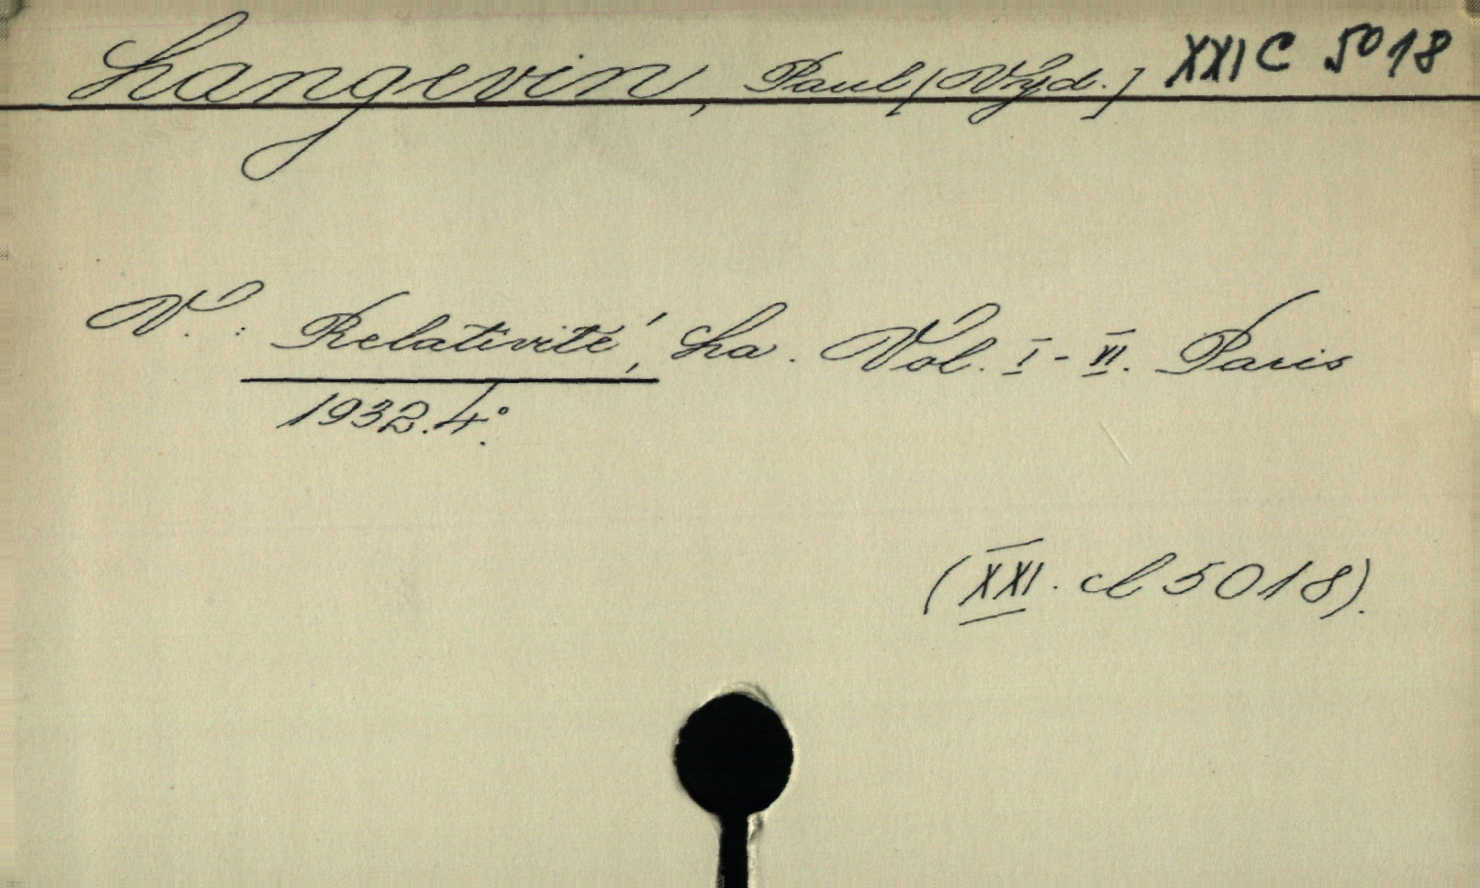 Langevin, Paul [Vyd.] XXI C 5018
V.: Relativité, La. Vol. I-VI. Paris
1932. 4°.
(XXI. C 5018).